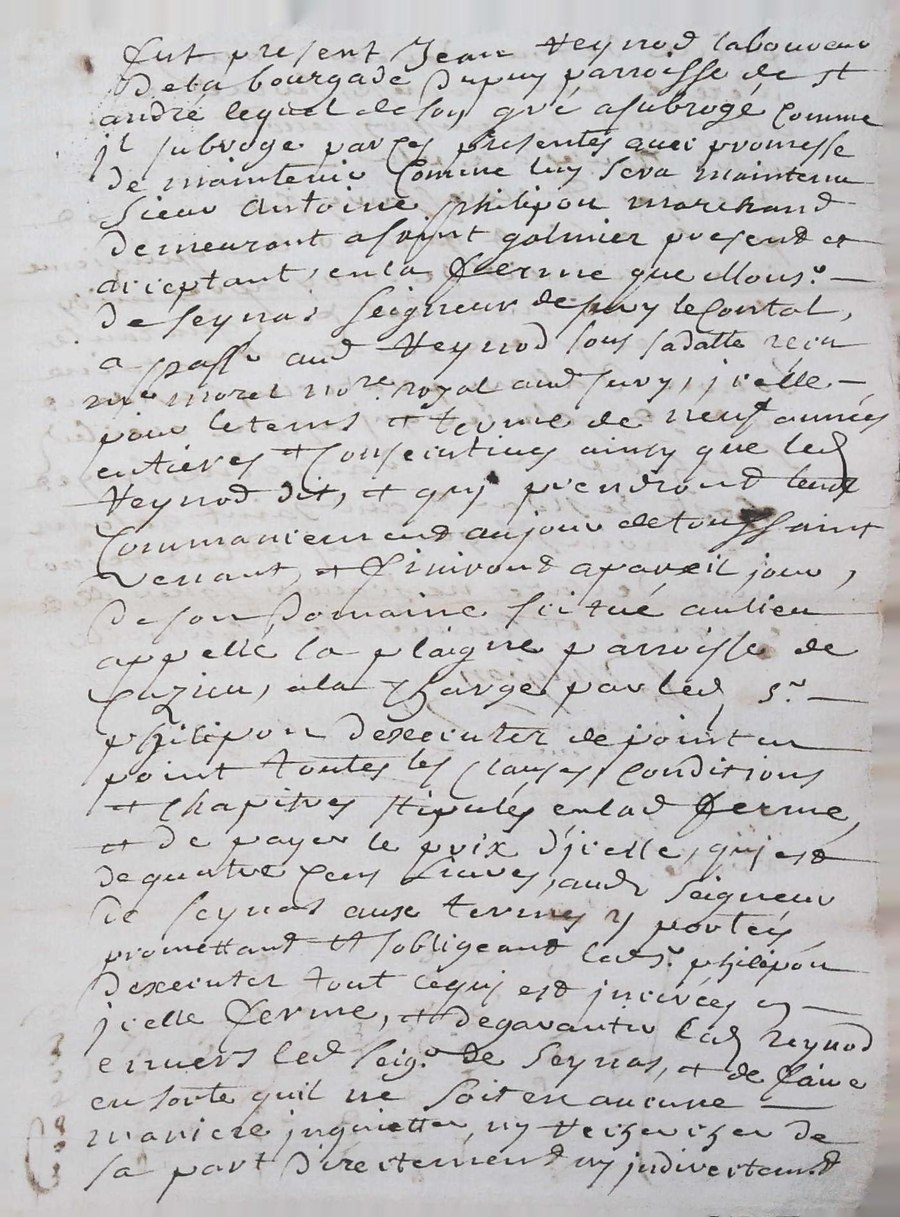 fut present Jean Reynod laboureur
de la bourgade Dupuy parroisse de st
andré lequel de son gré a subrogé comme
jl subroge par ces presentes avec promesse
de maintenir comme luy sera maintenu
Sieur Antoine philipon marchand
demeurant a saint galmier present et
acceptant, en la ferme que Monsr. —
de Seynas Seigneur de sury le Contal,
a passé aud Reynod sous sa datte recu
me morel nore. royal aud sury, jcelle —
pour le tems et terme de neuf années
entieres et consecutives ainsy que led
Reynod dit, et quj prendront leur
Commancement au jour de toussaint
venant, et finiront a pareil jour,
De son Domaine scitué au lieu
appellé la plaigne parroisse de
Cuzieu, a la charge par led sr —
philipon dexecuter de point en
point toutes les clauses, conditions
et chapitres stipulés en lad ferme,
et de payer le prix d'jcelle, quj est
de quatre cens livres, audt Seigneur
de Seynas aux termes y portés,
promettant et sobligeant led sr. philipon
Dexecuter tout ce quj est jnserées en —
jcelle ferme, et de garantir led reynod
envers led seigr. de Seynas, et de faire
en sorte quil ne soit en aucune —
maniere jnquietter, ny rechercher de
sa part directement ny jndirectement